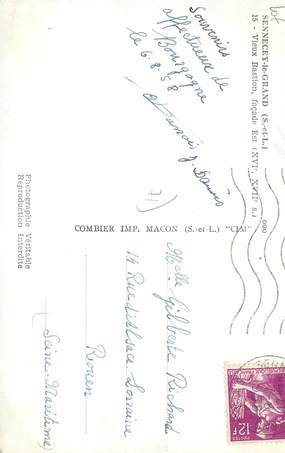 SENNECEY-le-GRAND (S.-et-L.)
15 - Vieux Bastion, façade Est (XVIe, XVIIe s.)
Souvenirs
affectueux de
Bourgogne
le 6.8.58
71)
COMBIER IMP. MACON (S.-et-L.) "CIM"
Photographie Véritable
Reproduction Interdite
Melle Gilberte Richard
14 Rue d'Alsace-Lorraine
Rouen
(Seine-Maritime)
12F